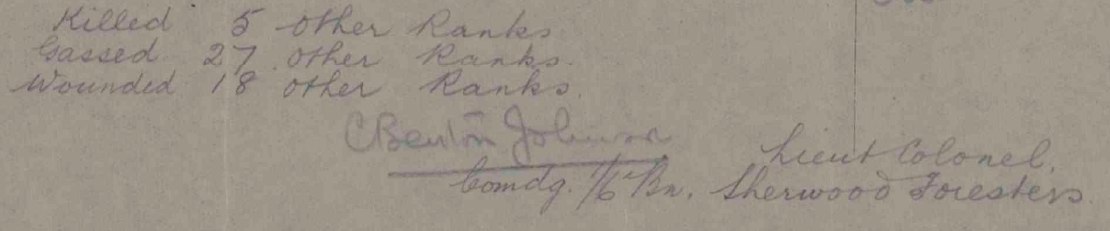 Killed 5 other Ranks
Gassed 27 other Ranks.
Wounded 18 other Ranks.
C Benton Johnson
Lieut Colonel.
Comdg. 1/6 Bn. Sherwood Foresters